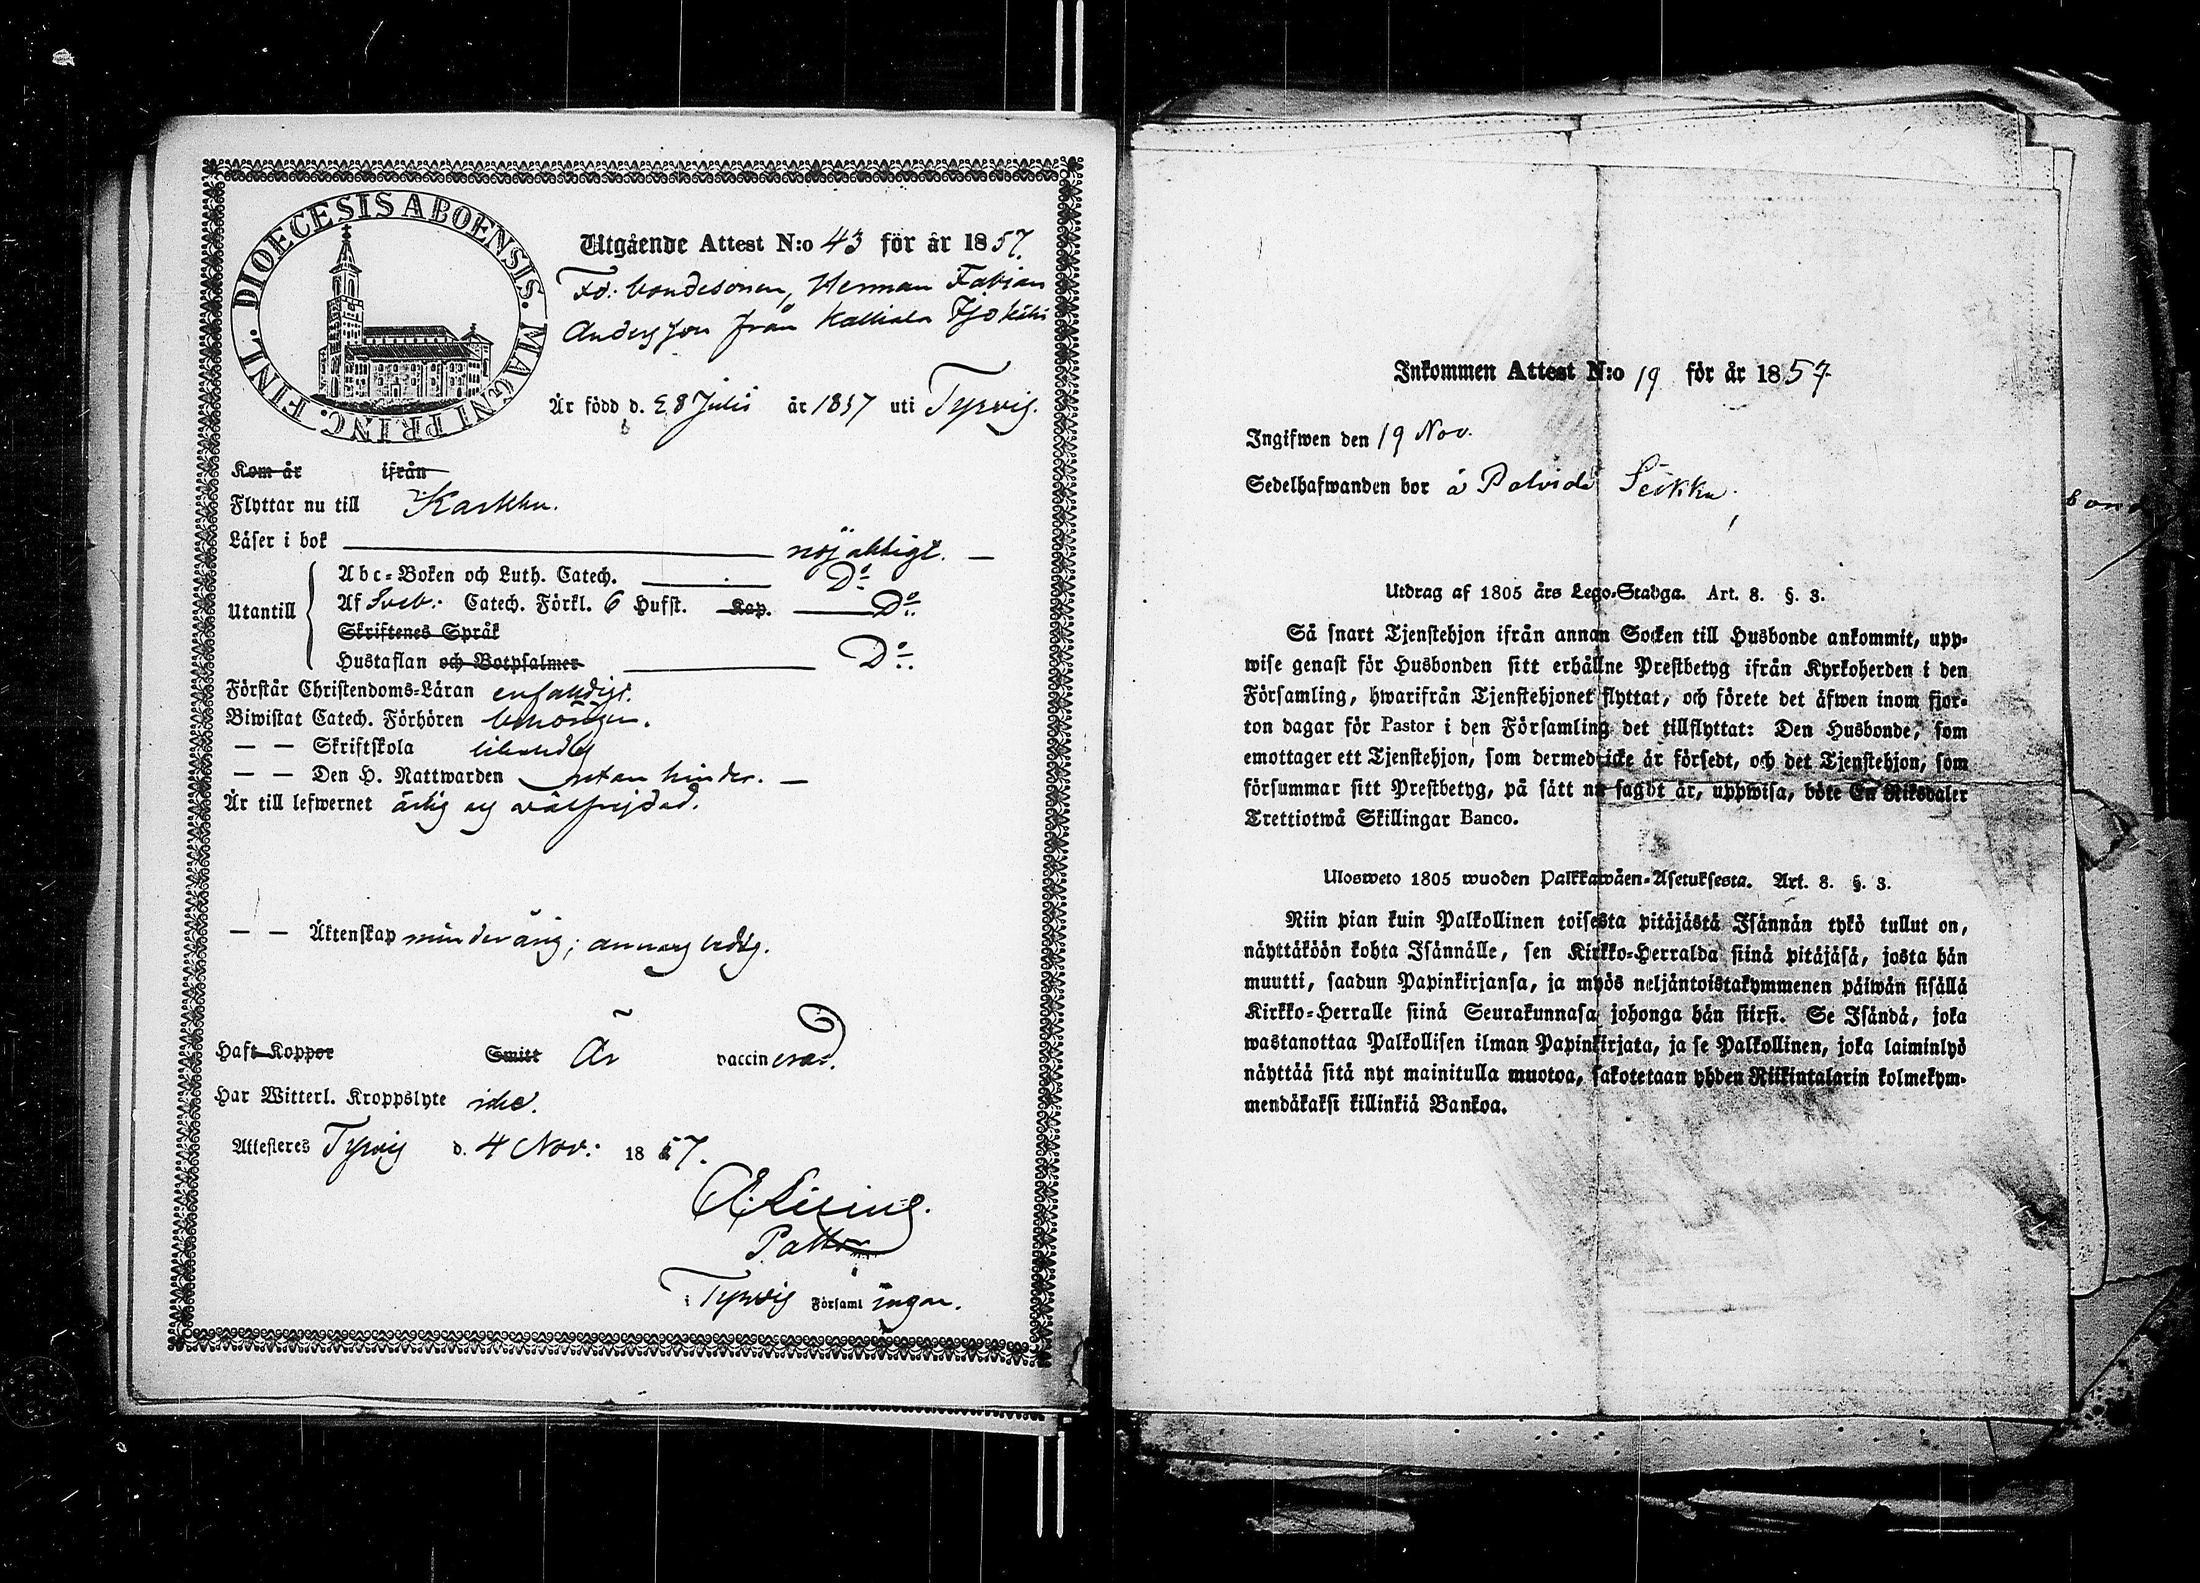 FINL. DIOECESIS ABOENSIS. MAGNI PRINC.
Utgående Attest N:o 43 för år 1857.
F.d. bondesonen, Herman Fabian
Andersson från Kalliala
Är född d. 28 Julii år 1837 uti Tyrvis.
Kom år ifrån
Flyttar nu till Karkku.
Läser i bok nöjaktigt. —
Abc-Boken och Luth. Catech. Do
Utantill
Af Sveb: Catech. Förkl. 6 Hufst. Kap. Do
Skriftenes Språk
Hustaflan och Botpsalmer Do.
Förstår Christendoms-Läran enfaldigt.
Biwistat Catech. Förhören behörigen.
— — Skriftskola likaledes
— — Den H. Nattwarden utan hinder. —
Är till lefwernet ärlig og välfrejdad.
— — Äktenskap minderårig; annars ledig.
Haft Koppor Smitt Är vaccinerad.
Har Witterl. Kroppslyte icke.
Attesteres Tyrvis d. 4 Nov: 1857.
Pastor
i Tyrvis Församlingar.
Inkommen Attest N:o 19 för år 1857
Ingifwen den 19 Nov.
Sedelhafwanden bor å Palviala Seikku.
Utdrag af 1805 års Lego-Stadga. Art. 8. §. 3.
Så snart Tjenstehjon ifrån annan Socken till Husbonde ankommit, upp-
wise genast för Husbonden sitt erhållne Prestbetyg ifrån Kyrkoherden i den
Församling, hwarifrån Tjenstehjonet flyttat, och förete det äfwen inom fjor-
ton dagar för Pastor i den Församling det tillflyttat: Den Husbonde, som
emottager ett Tjenstehjon, som dermed icke är försedt, och det Tjenstehjon, som
försummar sitt Prestbetyg, på sätt nu sagdt är, uppwisa, böte En Riksdaler
Trettiotwå Skillingar Banco.
Ulosweto 1805 wuoden Palkkawäen-Asetuksesta. Art. 8. §. 3.
Niin pian kuin Palkollinen toisesta pitäjästä Isännän tykö tullut on,
näyttäköön kohta Isännälle, sen Kirkko-Herralda siinä pitäjäsä, josta hän
muutti, saadun Papinkirjansa, ja myös neljäntoistakymmenen päiwän sisällä
Kirkko-Herralle siinä Seurakunnasa johonga hän siirsi. Se Isändä, joka
wastanottaa Palkollisen ilman Papinkirjata, ja se Palkollinen, joka laiminlyö
näyttää sitä nyt mainitulla muotoa, sakotetaan yhden Riikintalarin kolmekym-
mendäkaksi killinkiä Bankoa.